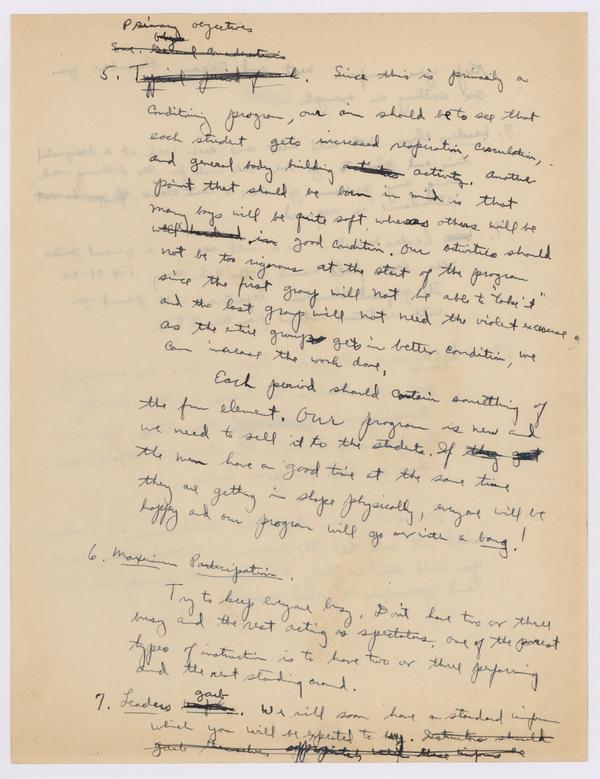 Primary objectives
Some General Considerations
5. Typical period of work. Since this is primarily a
conditioning program, our aim should be to see that
each student gets increased respiration, circulation,
and general body building activities activity. Another
point that should be born in mind is that
many boys will be quite soft, whereas others will be
in good condition. Our activities should
not be too rigorous at the start of the program
since the first group will not be able to "take it"
and the last group will not need the violent excercise,
as the entire group gets in better condition, we
can increase the work done.
Each period should contain something of
the fun element. Our program is new and
we need to sell it to the students. If they get
the men have a good time at the same time
they are getting in shape physically, everyone will be
happy and our program will go over with a bang!
6. Maximum Participation.
Try to keep everyone busy. Don't have two or three
busy and the rest acting as spectators. One of the poorest
types of instruction is to have two or three performing
and the rest standing around.
garb
7. Leaders . We will soon have a standard uniform
which you will be expected to buy. Instructors should
garb themselves appropriately until these uniforms are